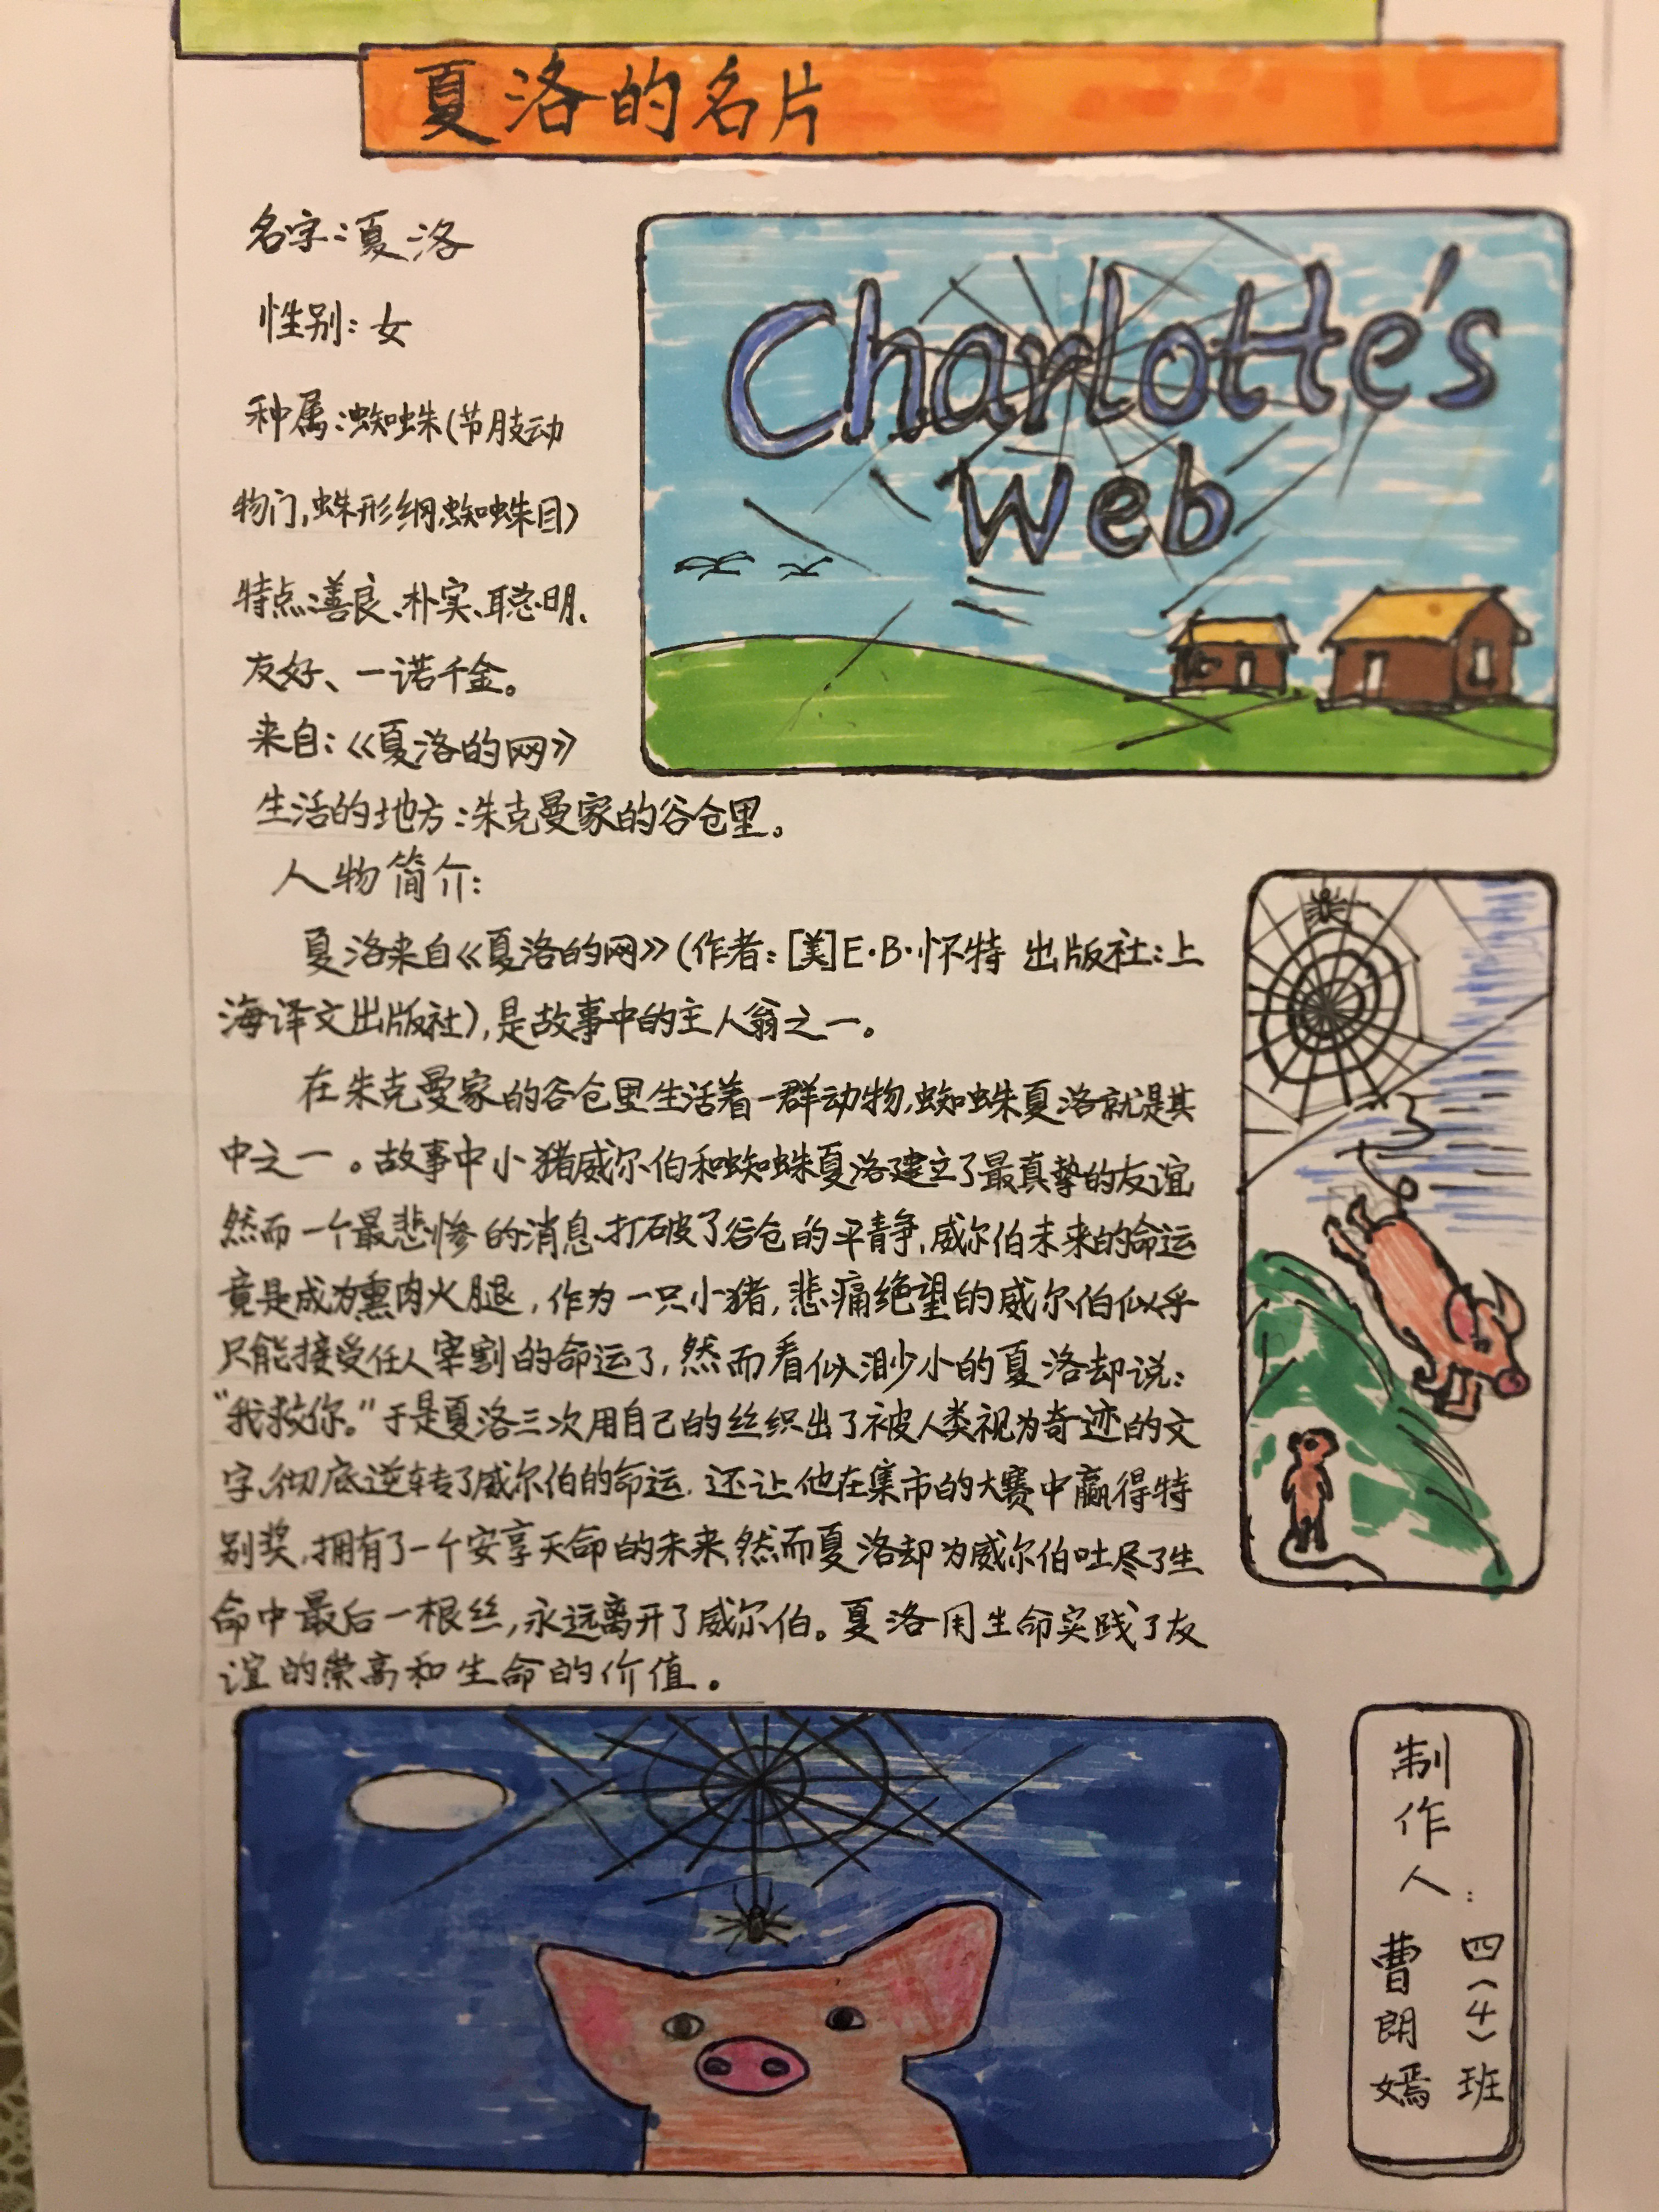 夏洛的名片
名字:夏洛
性别:女
种属:蜘蛛(节肢动
物门,蛛形纲,蜘蛛目)
特点:善良、朴实、聪明、
友好、一诺千金。
来自:《夏洛的网》
生活的地方:朱克曼家的谷仓里。
Charlotte's
Web
人物简介:
夏洛来自《夏洛的网》(作者:[美]E·B·怀特 出版社:上
海译文出版社),是故事中的主人翁之一。
在朱克曼家的谷仓里生活着一群动物,蜘蛛夏洛就是其
中之一。故事中小猪威尔伯和蜘蛛夏洛建立了最真挚的友谊
然而一个最悲惨的消息打破了谷仓的平静,威尔伯未来的命运
竟是成为熏肉火腿,作为一只小猪,悲痛绝望的威尔伯似乎
只能接受任人宰割的命运了,然而看似渺小的夏洛却说:
“我救你。”于是夏洛三次用自己的丝织出了被人类视为奇迹的文
字,彻底逆转了威尔伯的命运,还让他在集市的大赛中赢得特
别奖,拥有了一个安享天命的未来,然而夏洛却为威尔伯吐尽了生
命中最后一根丝,永远离开了威尔伯。夏洛用生命实践了友
谊的崇高和生命的价值。
制作人:
四(4)班
曹朗嫣